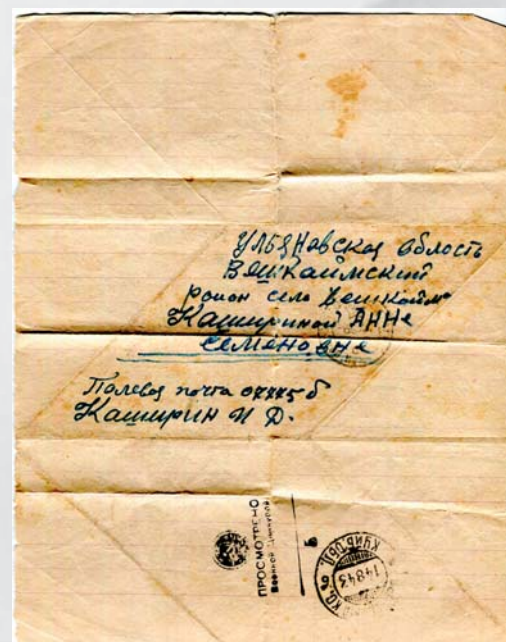 Ульяновская область
Вешкаймский
район село Вешкайма
Кашириной Анне
Семеновне
Полевая почта
Каширин И Д.
ПРОСМОТРЕНО
Военной Цензурой
КУЙБ. ОБЛ.
14 8 43